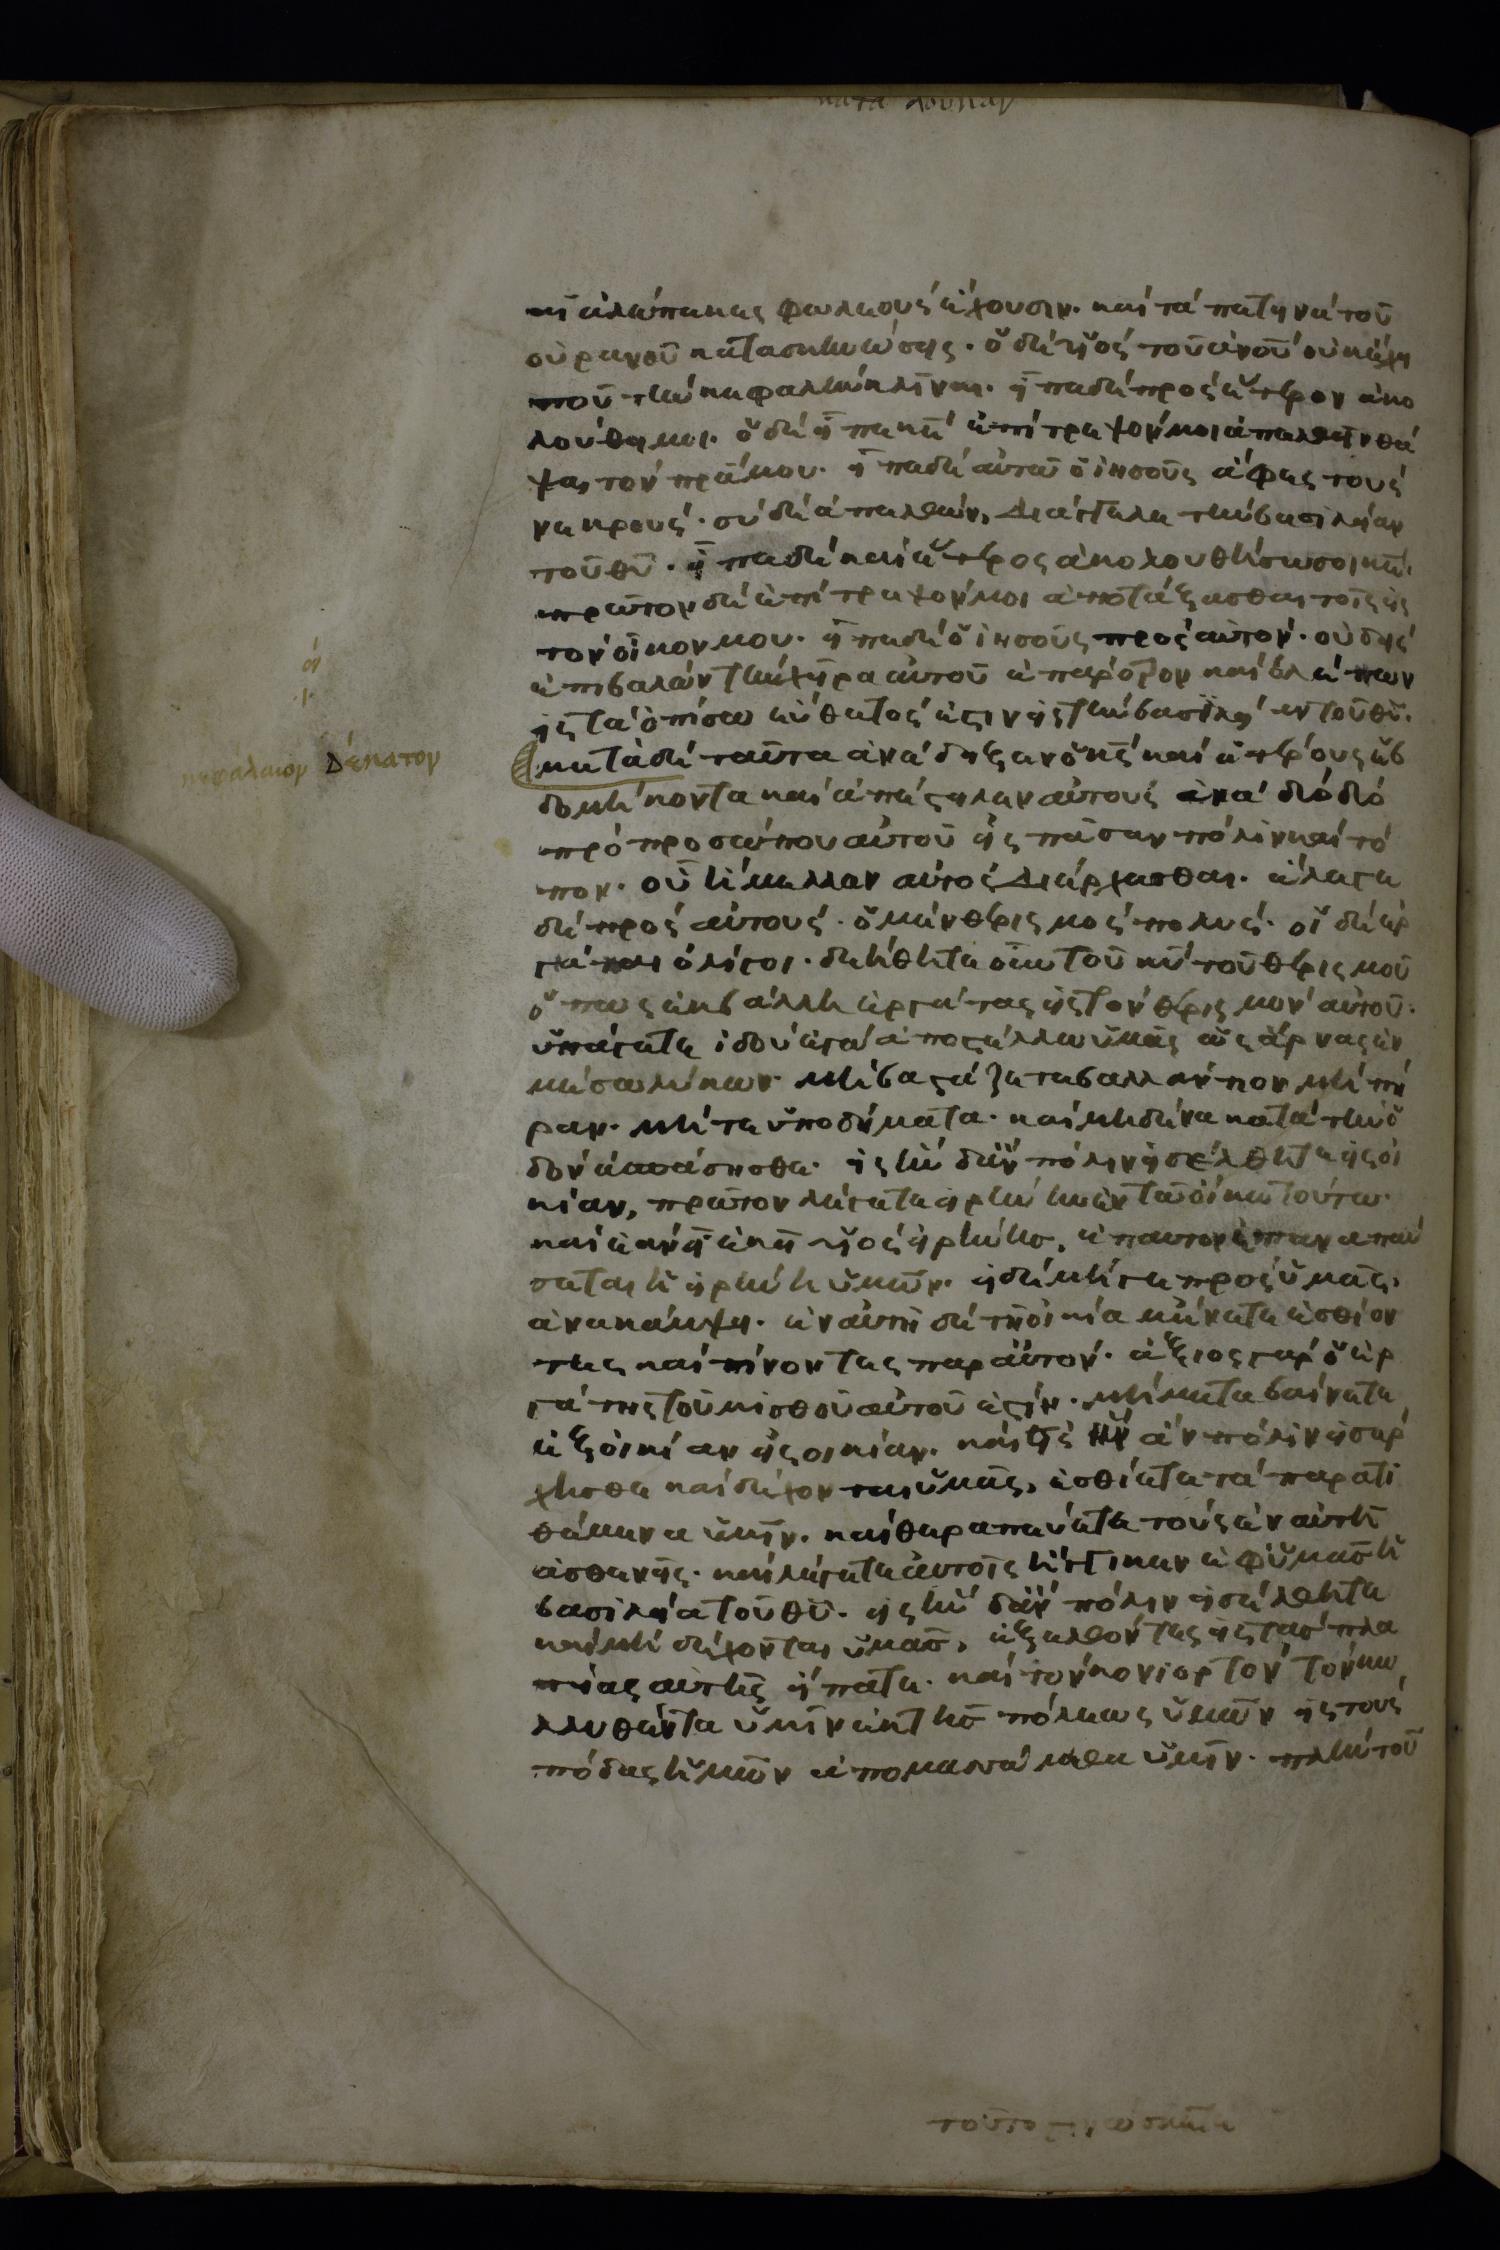 κατὰ λουκᾶν
αἱ ἀλώπεκες φωλεοὺς ἔχουσιν. καὶ τὰ πετεινὰ τοῦ
οὐρανοῦ κατασκηνώσεις. ὁ δὲ υἱὸς τοῦ ἀνοῦ οὐκ ἔχει
ποῦ τὴν κεφαλὴν κλῖναι. εἶπε δὲ πρὸς ἕτερον ἀκο
λούθει μοι. ὁ δὲ εἶπε κε ἐπίτρεψόν μοι ἀπελθεῖν θά
ψαι τὸν πρα μου. εἶπε δὲ αὐτῶ ὁ ἰησοῦς ἄφες τοὺς
νεκρούς. σὺ δὲ ἀπελθὼν, διάγγελε τὴν βασιλείαν
τοῦ θυ. εἶπε δὲ καὶ ἕτερος ἀκολουθήσω σοι κε.
πρῶτον δὲ ἐπίτρεψόν μοι ἀποτάξασθαι τοῖς εἰς
τὸν οἶκον μου. εἶπε δὲ ὁ ἰησοῦς πρὸς αὐτόν. οὐδεὶς
ἐπιβαλὼν τὴν χεῖρα αὐτοῦ ἐπ' ἄροτρον καὶ βλέπων
εἰς τὰ ὀπίσω εὔθετός ἐστιν εἰς τὴν βασιλείαν τοῦ θυ.
μετὰ δὲ ταῦτα ἀνέδειξεν ὁ κς καὶ ἑτέρους ἑβ
δομήκοντα καὶ ἀπέστειλεν αὐτοὺς ἀνὰ δύο δύο
πρὸ προσώπου αὐτοῦ εἰς πᾶσαν πόλιν καὶ τό
πον. οὗ ἤμελλεν αὐτὸς διέρχεσθαι. ἔλεγε
δὲ πρὸς αὐτούς. ὁ μὲν θερισμὸς πολύς. οἱ δὲ ἐρ
γάται ὀλίγοι. δεήθητε οὖν τοῦ κυ τοῦ θερισμοῦ
ὅπως ἐκβάλλη ἐργάτας εἰς τὸν θερισμὸν αὐτοῦ.
ὑπάγετε ἰδοὺ ἐγὼ ἀποστέλλω ὑμᾶς ὡς ἄρνας ἐν
μέσω λύκων. μὴ βαστάζετε βαλλάντιον μὴ πή
ραν. μὴ τε ὑποδήματα. καὶ μηδένα κατὰ τὴν ὁ
δὸν ἀσπάσησθε. εἰς ἣν δ' ἂν πόλιν εἰσέλθητε εἰς οἰ
κίαν, πρῶτον λέγετε εἰρήνη ἐν τῶ οἴκω τούτω.
καὶ ἐὰν ἦ ἐκεῖ υἱὸς εἰρήνης, ἐπ' αὐτὸν ἐπαναπαύ
σεται ἡ εἰρήνη ὑμῶν. εἰ δὲ μήγε πρὸς ὑμᾶς,
ἀνακάμψει. ἐν αὐτῆ δὲ τῆ οἰκία μένετε ἐσθίον
τες καὶ πίνοντες παρ' αὐτῶν. ἄξιος γὰρ ὁ ἐρ
γάτης τοῦ μισθοῦ αὐτοῦ ἐστίν. μὴ μεταβαίνετε
ἐξ οἰκίαν εἰς οἰκίαν. καὶ εἰς ἣν ἂν πόλιν εἰσέρ
χησθε καὶ δέχονται ὑμᾶς, ἐσθίετε τὰ παρατι
θέμενα ὑμῖν. καὶ θεραπεύετε τοὺς ἐν αὐτῆ
ἀσθενεῖς. καὶ λέγετε αὐτοῖς ἤγγικεν ἐφ' ὑμᾶς ἡ
βασιλεία τοῦ θυ. εἰς ἣν δ' ἂν πόλιν εἰσέλθητε
καὶ μὴ δέχονται ὑμᾶς, ἐξελθόντες εἰς τὰς πλα
τείας αὐτῆς εἴπατε. καὶ τὸν κονιορτὸν τὸν κο
λληθέντα ὑμῖν ἐκ τῆς πόλεως ὑμῶν εἰς τοὺς
πόδας ἡμῶν ἀπομασσόμεθα ὑμῖν. πλὴν τοῦ
οι
ι
κεφάλαιον Δέκατον
τοῦτο γινώσκετε